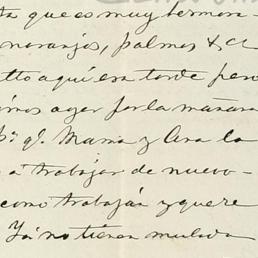 ta que es muy hermo-
naranjos, palmas &c
tto aquí era tarde pero
imos ayer por la mañana
Pº. q! Mama y Ana la
a trabajar de nuevo-
como trabajan y quere
Ya no tienen